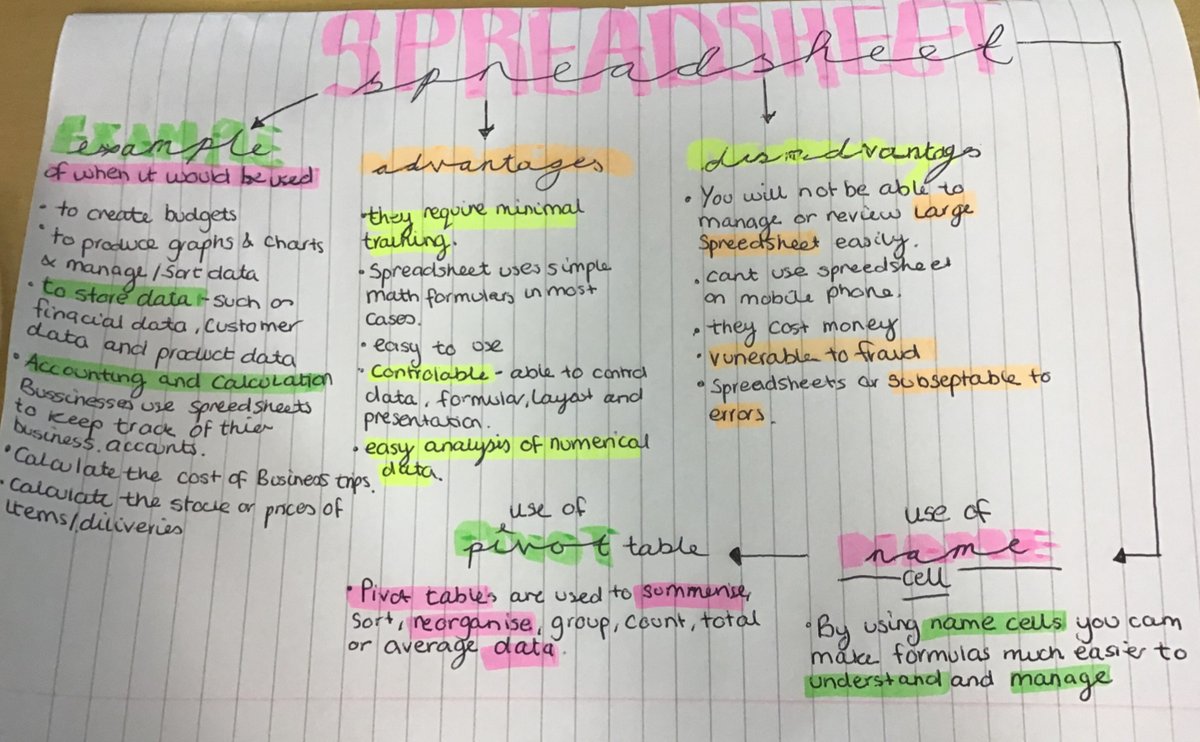 SPREADSHEET
spreadsheet
EXAMPLE
example
of when it would be used
• to create budgets
• to produce graphs & charts
& manage/sort data
• to store data - such as
finacial data, customer
data and product data
• Accounting and calculation
Bussinesses use spreedsheets
to keep track of thier
business accants.
• Calculate the cost of Business trips.
• Calculate the stock or prices of
items/diliveries
advantages
• they require minimal
training.
• Spreadsheet uses simple
math formulars in most
cases.
• easy to use
• Controlable - able to control
data, formular, layout and
presentation.
• easy analysis of numerical
data.
disadvantages
• You will not be able to
manage or review large
Spreedsheet easily.
• cant use spreedsheet
on mobile phone.
• they cost money
• vunerable to fraud
• Spreadsheets ar subseptable to
errors.
use of
pivot table
• Pivot tables are used to summerise,
sort, reorganise, group, count, total
or average data.
use of
NAME
name
cell
• By using name cells you cam
make formulas much easier to
understand and manage